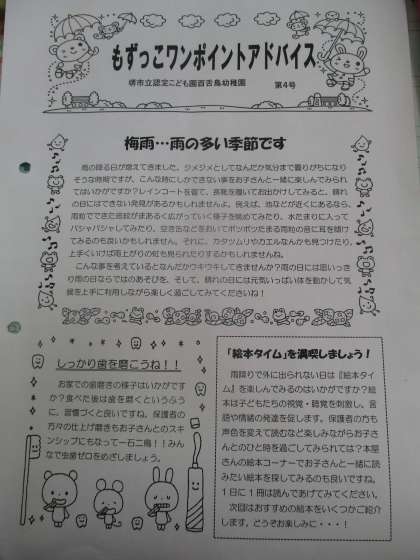 もずっこワンポイントアドバイス
堺市立認定こども園百舌鳥幼稚園　第4号
梅雨…雨の多い季節です
雨の降る日が増えてきました。ジメジメとしてなんだか気分まで曇りがちになり
そうな時期ですが、こんな時にしかできない事をお子さんと一緒に楽しんでみられ
てはいかがですか？レインコートを着て、長靴を履いてお出かけしてみると、晴れ
の日にはできない発見があるかもしれませんよ。例えば、池などが近くにあるなら、
雨粒でできた波紋がまあるく広がっていく様子を眺めてみたり、水たまりに入って
パシャパシャしてみたり、空き缶などをおいてポツポツたまる雨粒の音に耳を傾け
てみるのも良いかもしれません。それに、カタツムリやカエルなんかも見つけたり、
上手くいけば雨上がりの虹も見られたりするかもしれませんね。
こんな事を考えているとなんだかウキウキしてきませんか？雨の日には思いっき
り雨の日ならではのあそびを、そして、晴れの日には元気いっぱい体を動かして気
候を上手に利用しながら楽しく過ごしてみてくださいね！
しっかり歯を磨こうね！！
お家での歯磨きの様子はいかがです
か？食べた後は歯を磨くというふう
に、習慣づくと良いですね。保護者の
方々の仕上げ磨きもお子さんとのスキ
ンシップにもなって一石二鳥！！みん
なで虫歯ゼロをめざしましょう。
「絵本タイム」を満喫しましょう！
雨降りで外に出られない日は『絵本タイ
ム』を楽しんでみるのはいかがですか？絵
本は子どもたちの視覚・聴覚を刺激し、言
語や情緒の発達を促します。保護者の方も
声色を変えて読むなど楽しみながらお子さ
んとのひと時を過ごしてみられては？本屋
さんの絵本コーナーでお子さんと一緒に読
みたい絵本を探してみるのも良いですね。
1日に1冊は読んであげてみてください。
次回はおすすめの絵本をいくつかご紹介
します。どうぞお楽しみに・・・！